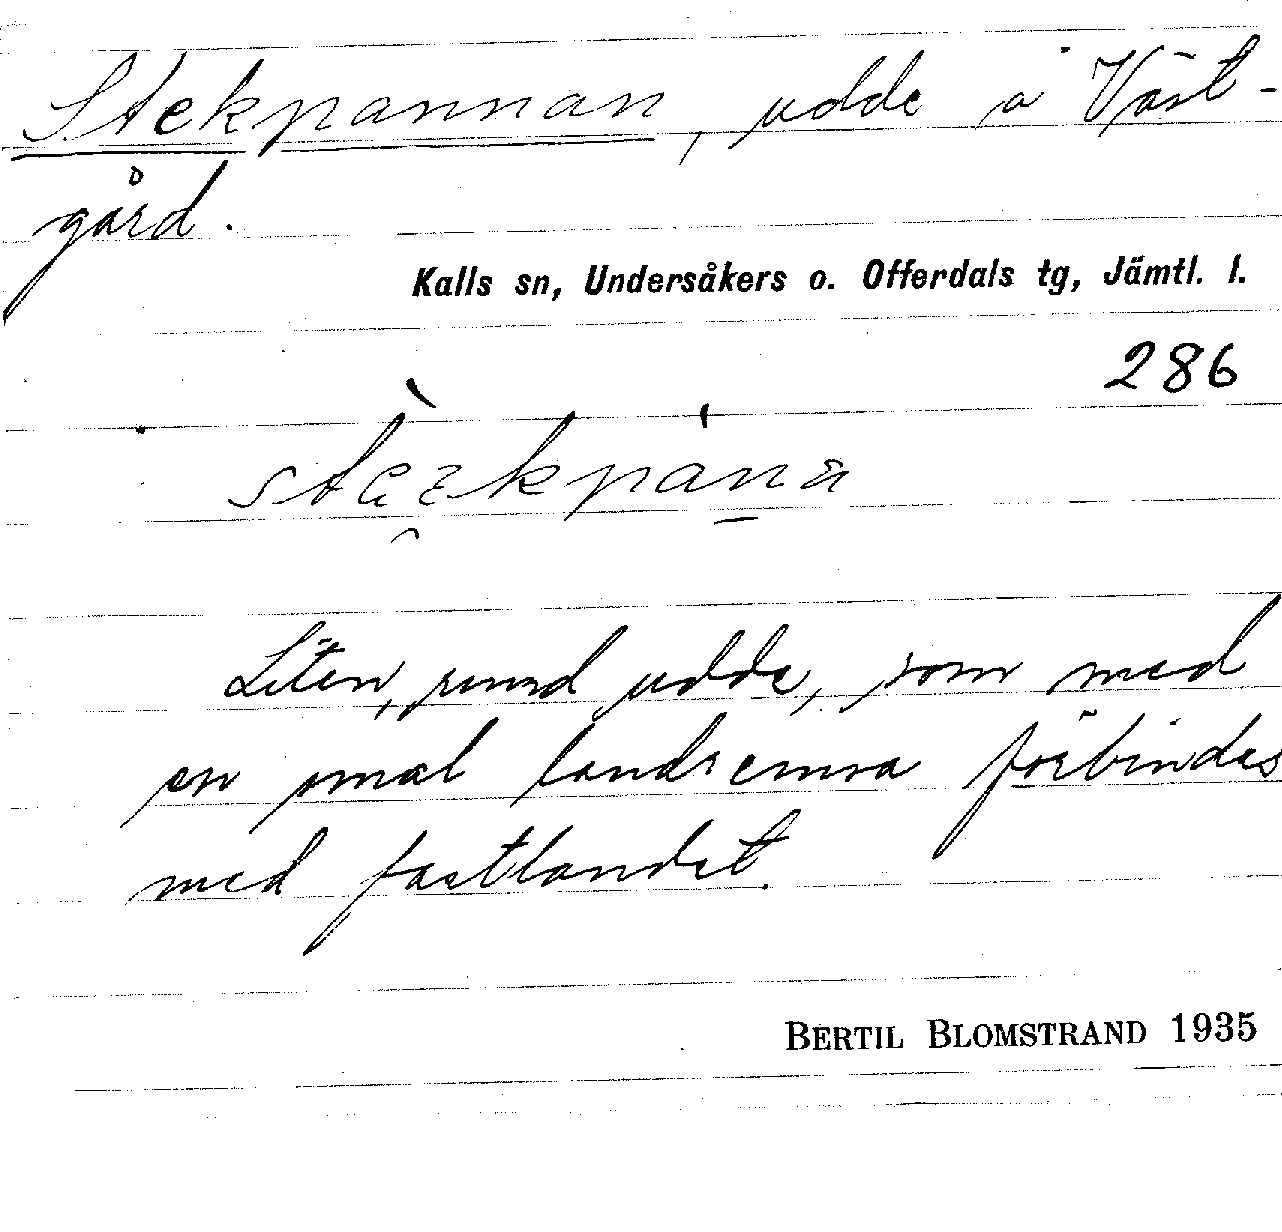 Stekpannan, udde å Väst-
gård.
Kalls sn, Undersåkers o. Offerdals tg, Jämtl. l.
286
Liten, rund udde, som med
en smal landremsa förbindes
med fastlandet.
BERTIL BLOMSTRAND 1935